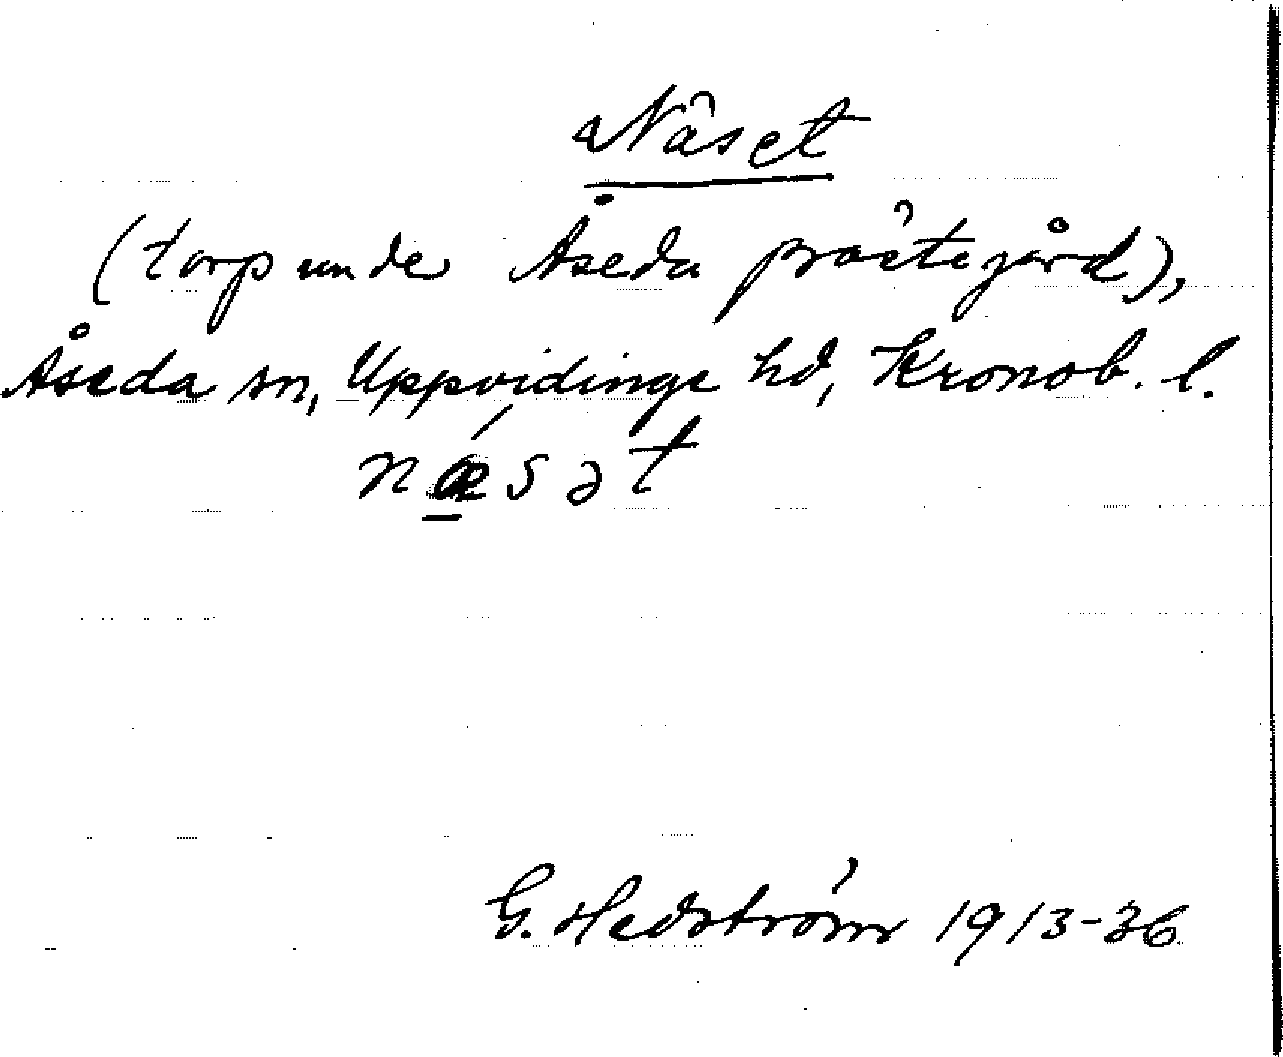 Näset
(torp under Åseda prästegård),
Åseda sn, Uppvidinge hd, Kronob. l.
nǽ̲sət
G. Hedström 1913-36